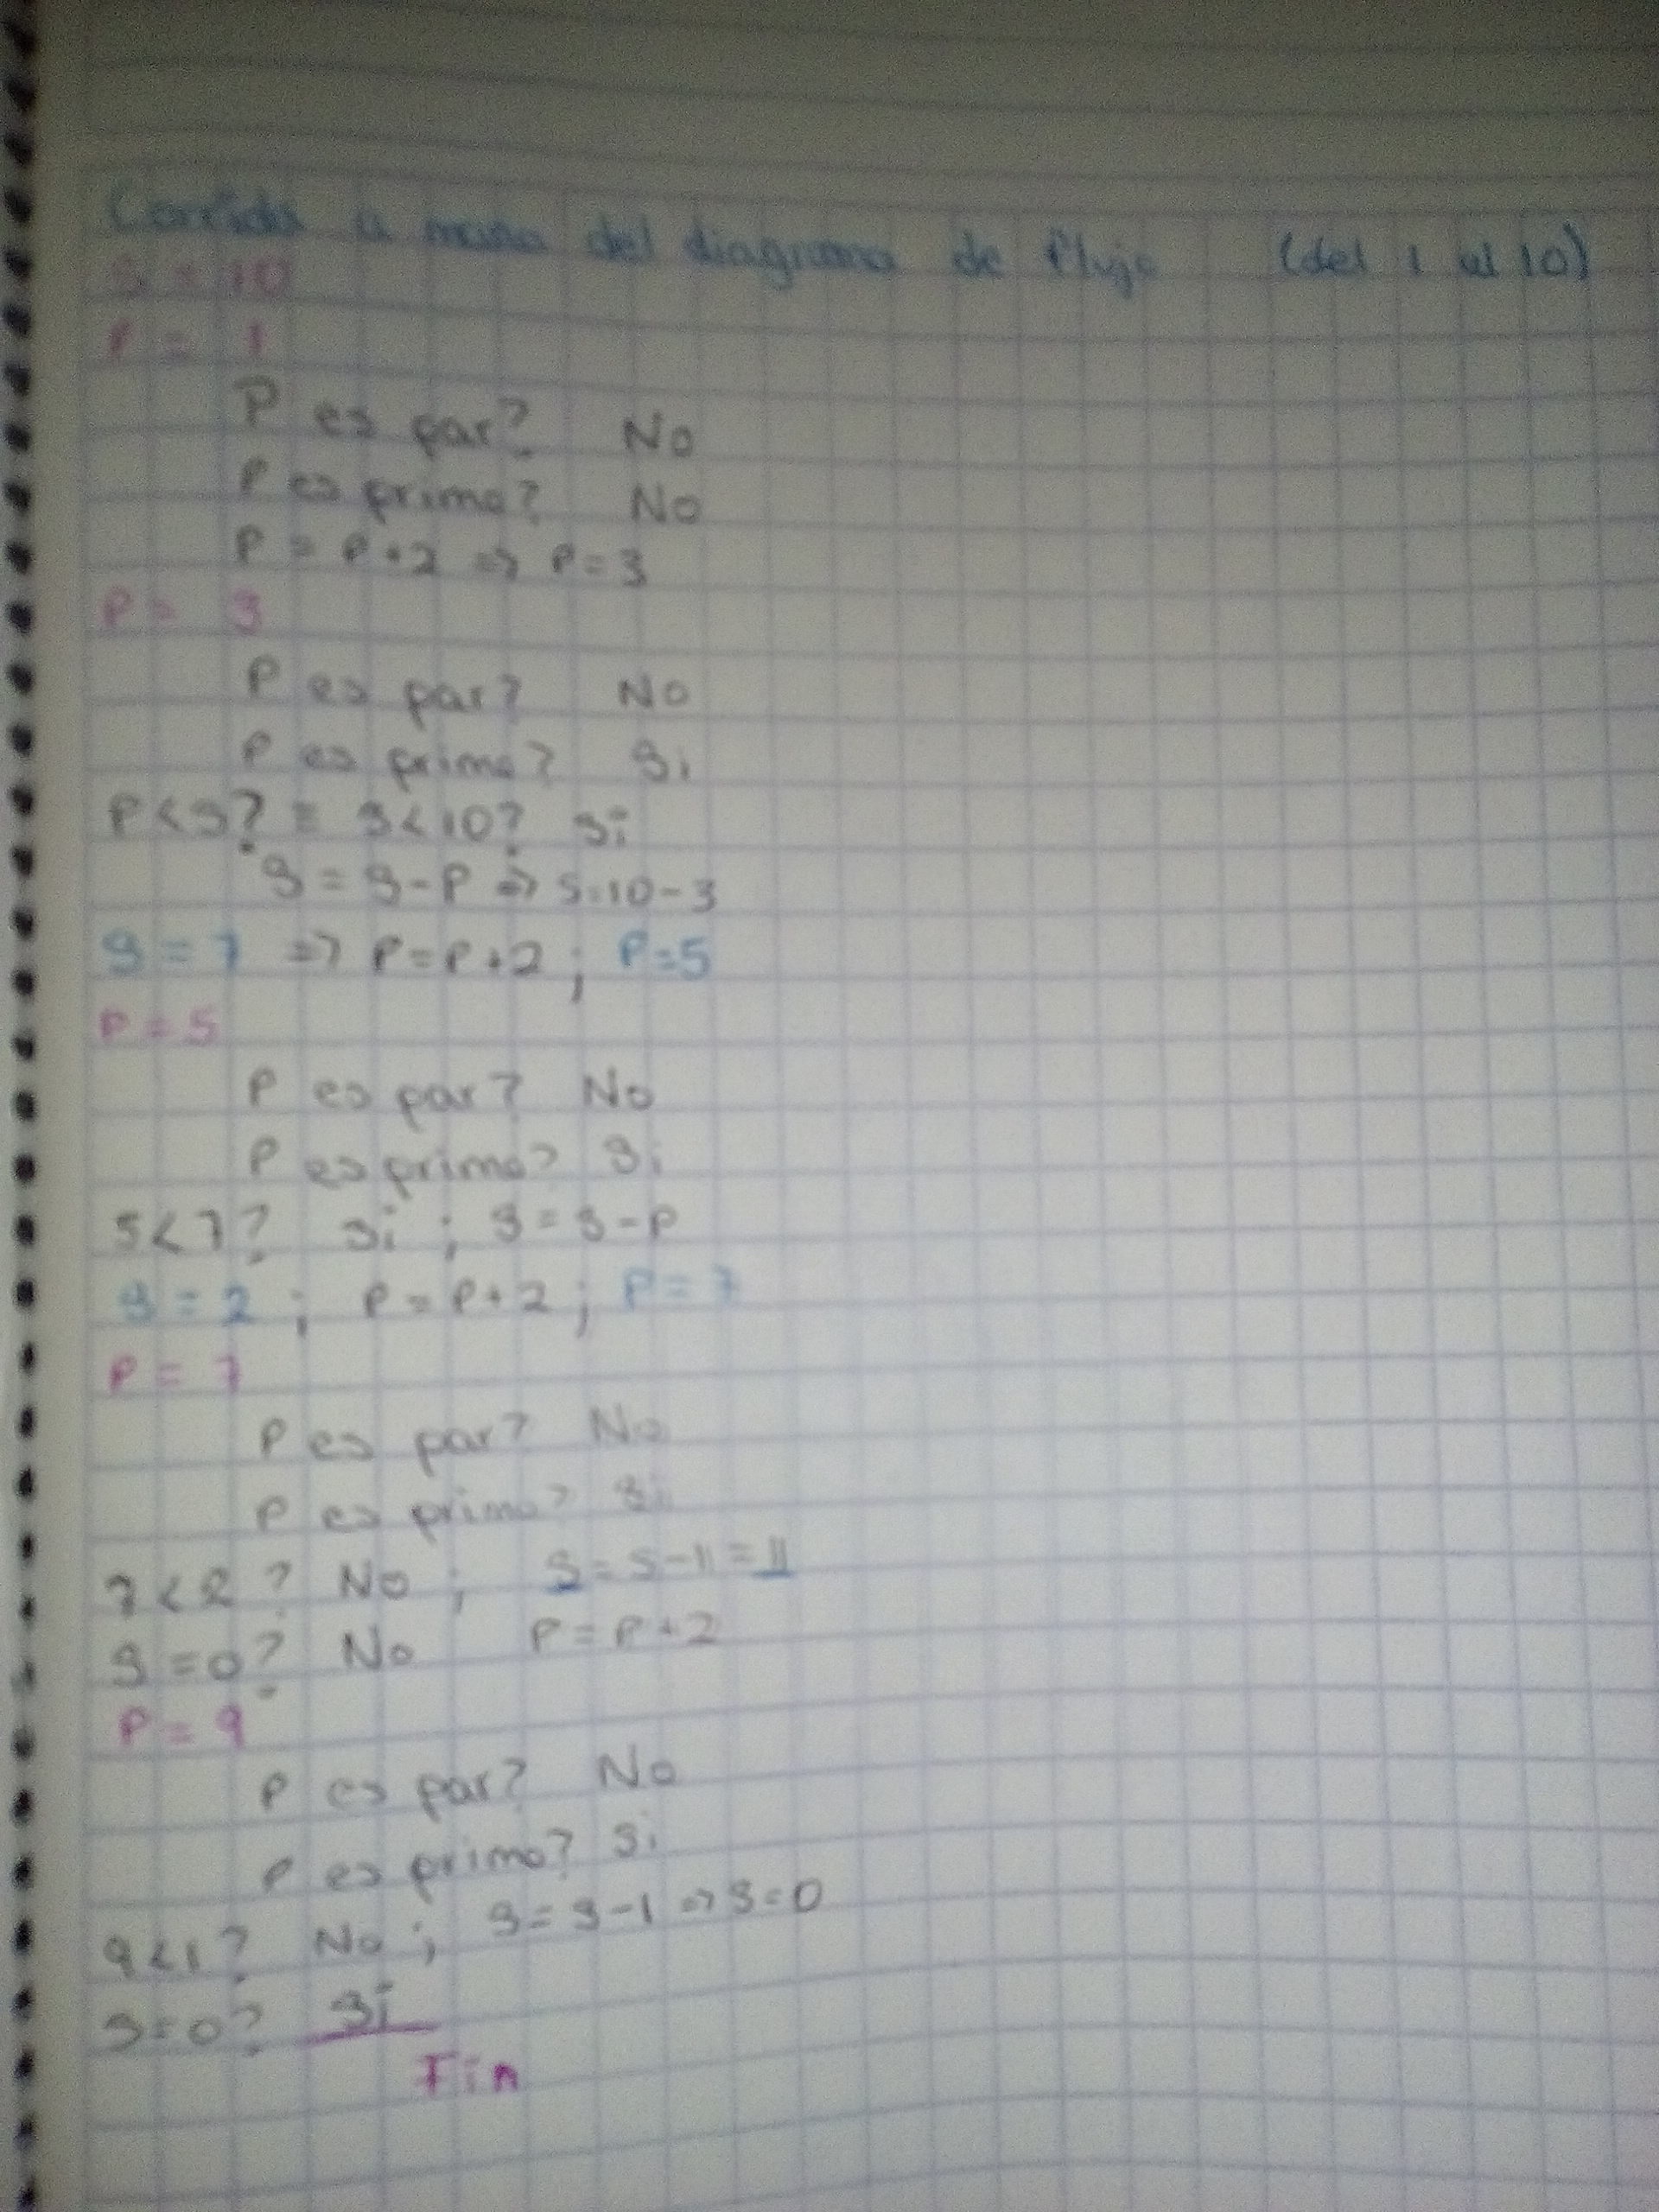 Corrida a mano del diagrama de flujo (del 1 al 10)
S = 10
P = 1
P es par? No
P es primo? No
P = P+2 => P=3
P = 3
P es par? No
P es primo? Si
P<S? = 3<10? Si
S = S-P => S=10-3
S = 7 => P=P+2; P=5
P = 5
P es par? No
P es primo? Si
5<7? Si; S=S-P
S = 2; P=P+2; P=7
P = 7
P es par? No
P es primo? Si
7<2? No; S=S-1=1
S=0? No P=P+2
P = 9
P es par? No
P es primo? Si
9<1? No; S=S-1=>S=0
S=0? Si
Fin